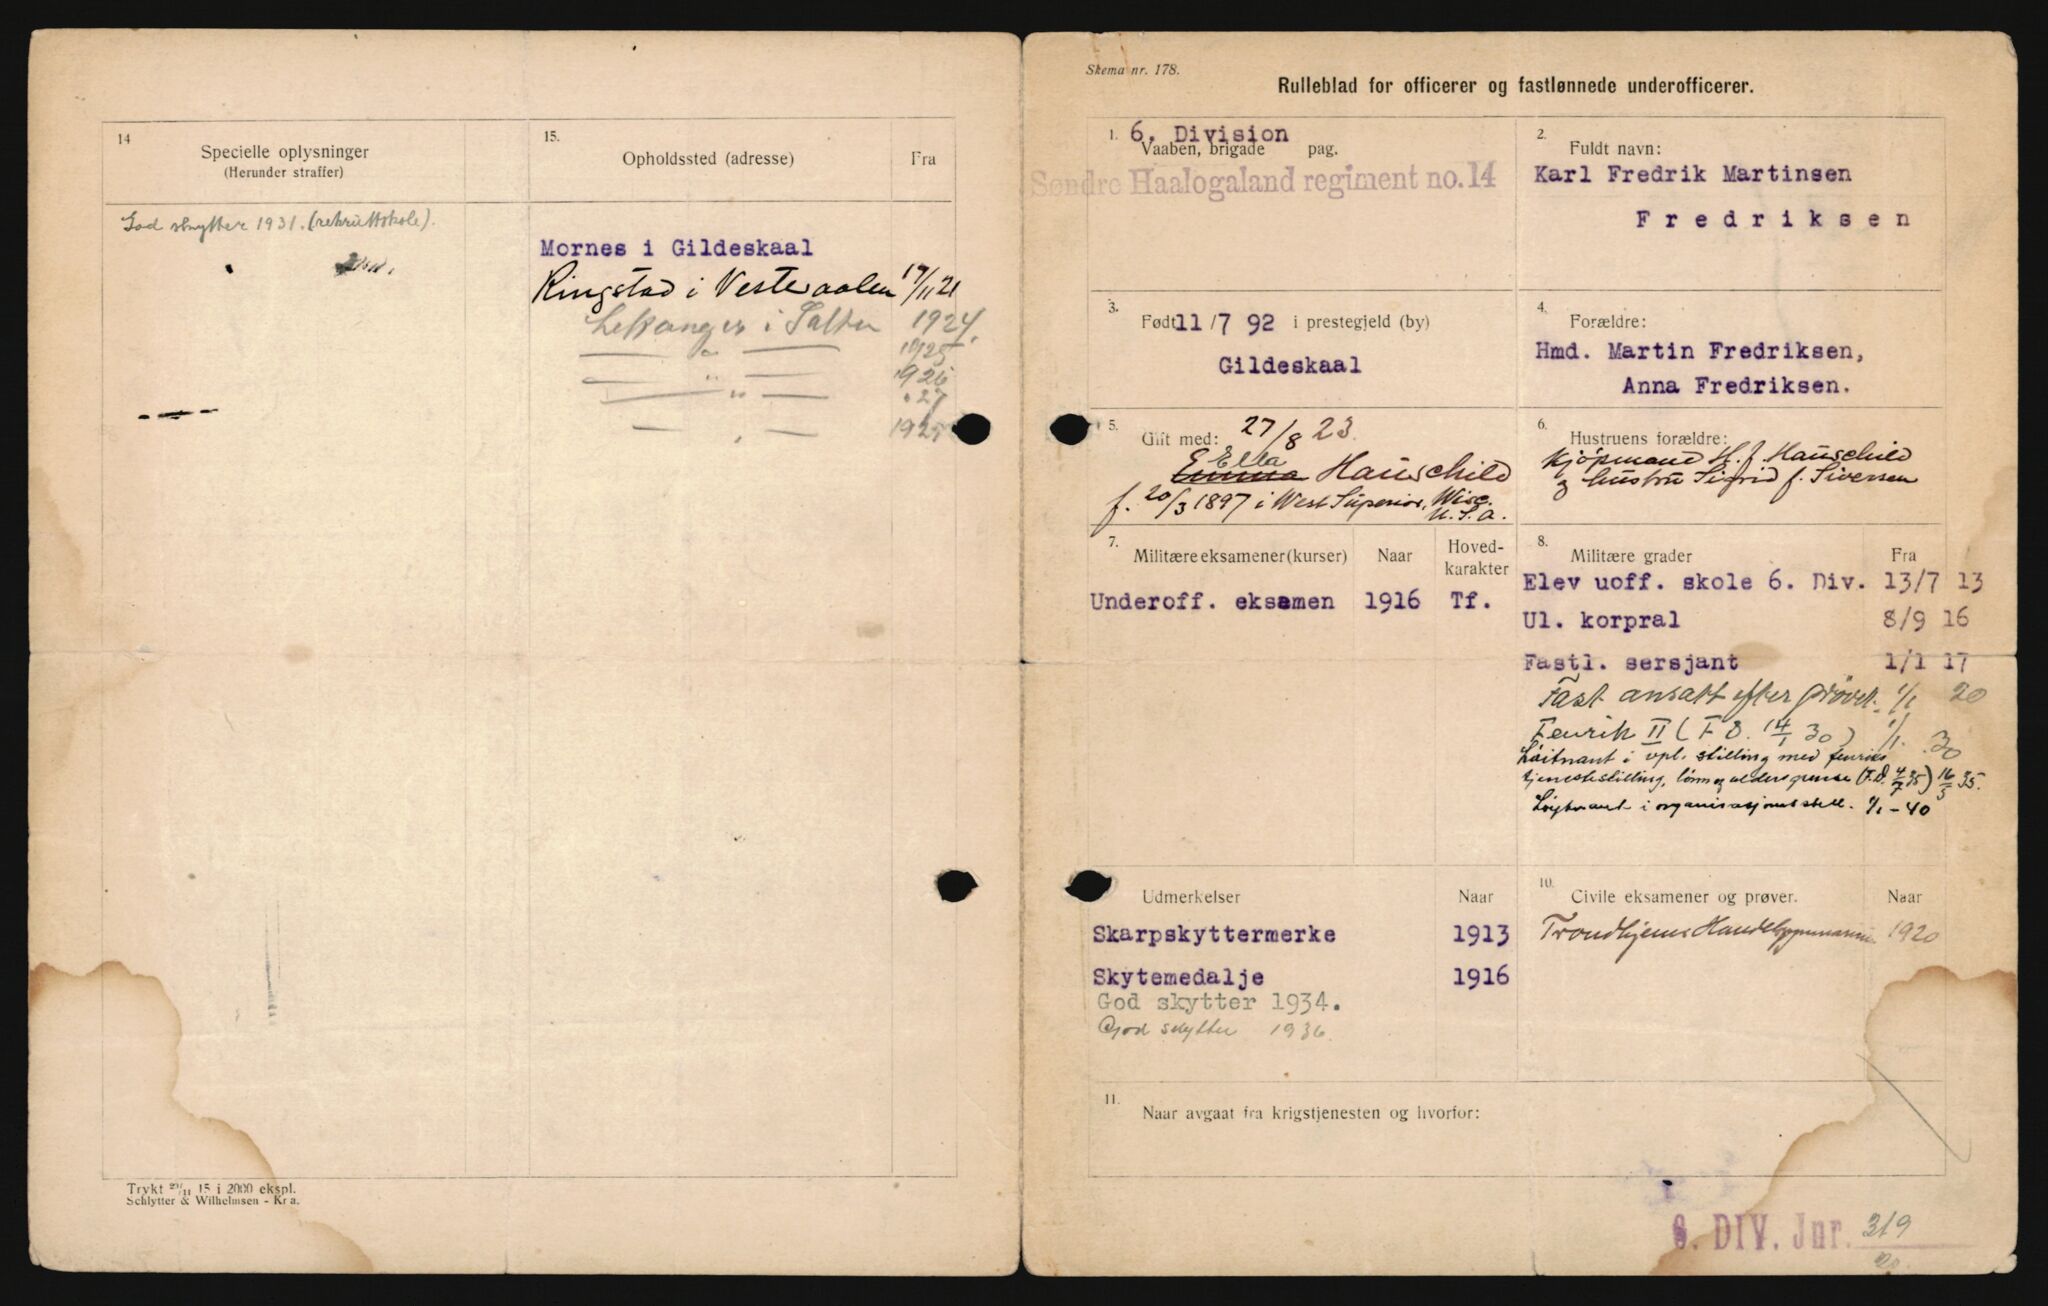 14
Specielle oplysninger
(Herunder straffer)
15.
Opholdssted (adresse)
Fra
God skytter 1931. (rekruttskole).
Mornes i Gildeskaal
Ringstad i Vesteraalen 17/11 21
i Salten 1924.
— " — 1925
— " — 1926
— " — 27
— " —
Trykt 29/11 15 i 2000 ekspl.
Schlytter & Wilhelmsen - Kra.
Skema nr. 178.
Rulleblad for officerer og fastlønnede underofficerer.
1.
6. Division
Vaaben, brigade pag.
Søndre Haalogaland regiment no. 14
2.
Fuldt navn:
Karl Fredrik Martinsen
Fredriksen
3.
Født 11/7 92 i prestegjeld (by)
Gildeskaal
4.
Forældre:
Hmd. Martin Fredriksen,
Anna Fredriksen.
5.
Gift med: 27/8 23.
Ella
Emma Hauschild
f. 20/3 1897 i West Superior, Wisc.
U.S.a.
6.
Hustruens forældre:
Kjøpmand H. J. Hauschild
og hustru Sigrid f. Siversen
7.
Militære eksamener (kurser)
Naar
Hoved-
karakter
Underoff. eksamen 1916 Tf.
8.
Militære grader
Fra
Elev uoff. skole 6. Div. 13/7 13
Ul. korpral 8/9 16
Fastl. sersjant 1/1 17
Fast ansatt efter prøvet. 1/1 20
Fenrik II (F D. 14/1 30) 1/1. 30
Løitnant i opl. stilling med fenriks
tjenestestilling, lønn og aldersgrense (F.D. 4/7 35) 16/5 35.
Løytnant i organisasjonsstill. 1/1 - 40
Udmerkelser
Naar
Skarpskyttermerke 1913
Skytemedalje 1916
God skytter 1934.
God skytter 1936.
10.
Civile eksamener og prøver.
Naar
Trondhjems Handelsgymnasium 1920
11.
Naar avgaat fra krigstjenesten og hvorfor:
6. DIV. Jnr. 319
20.